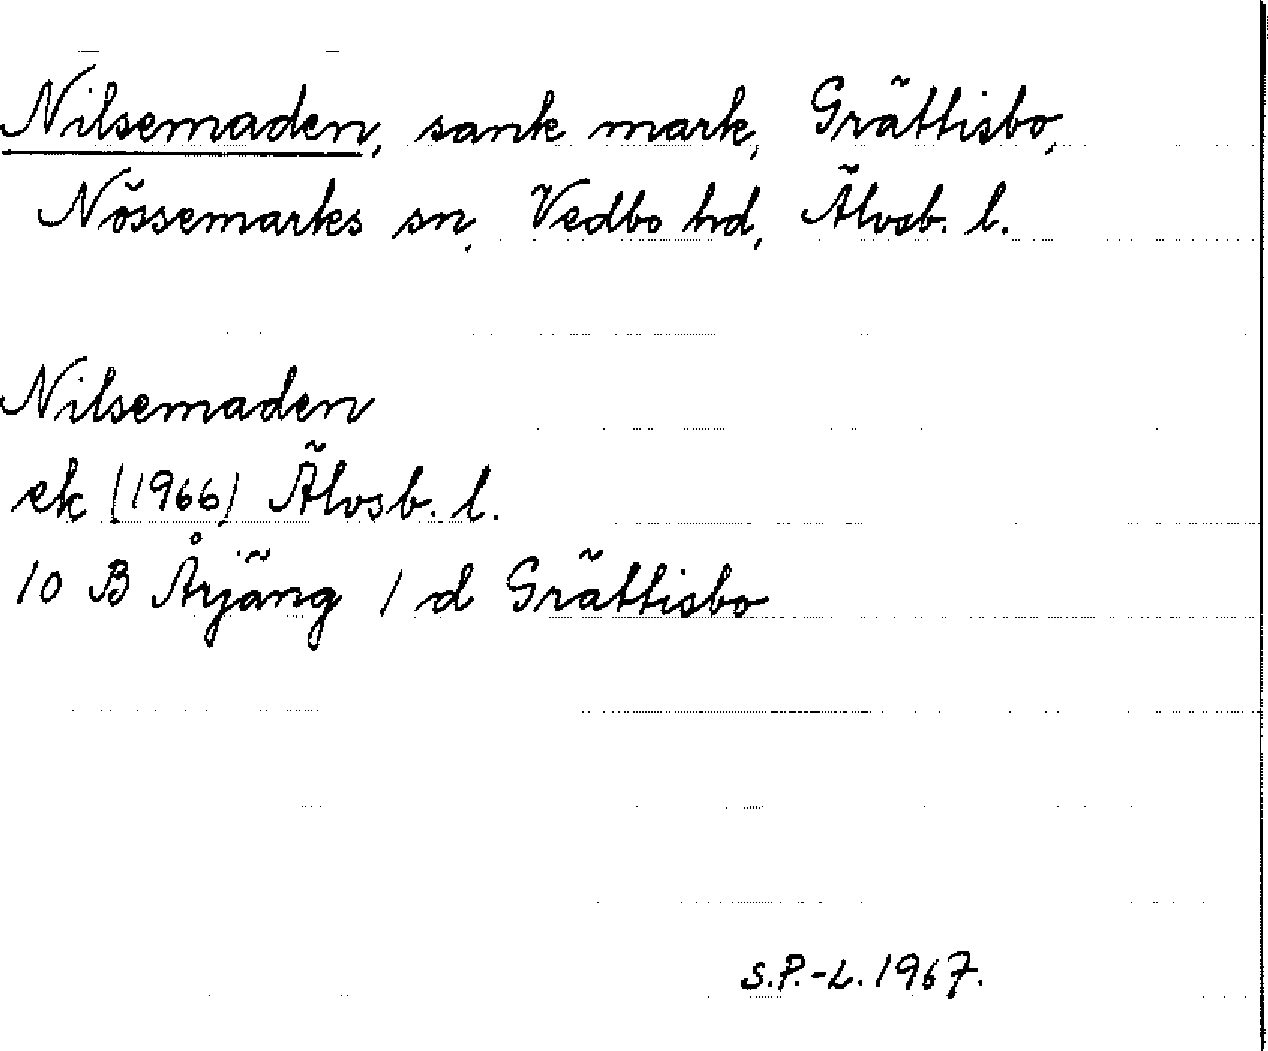 Nilsemaden, sank mark, Grättisbo,
Nössemarks sn, Vedbo hd, Älvsb. l.
Nilsemaden
ek (1966) Älvsb. l.
10 B Årjäng 1 d Grättisbo
S.P.-L. 1967.